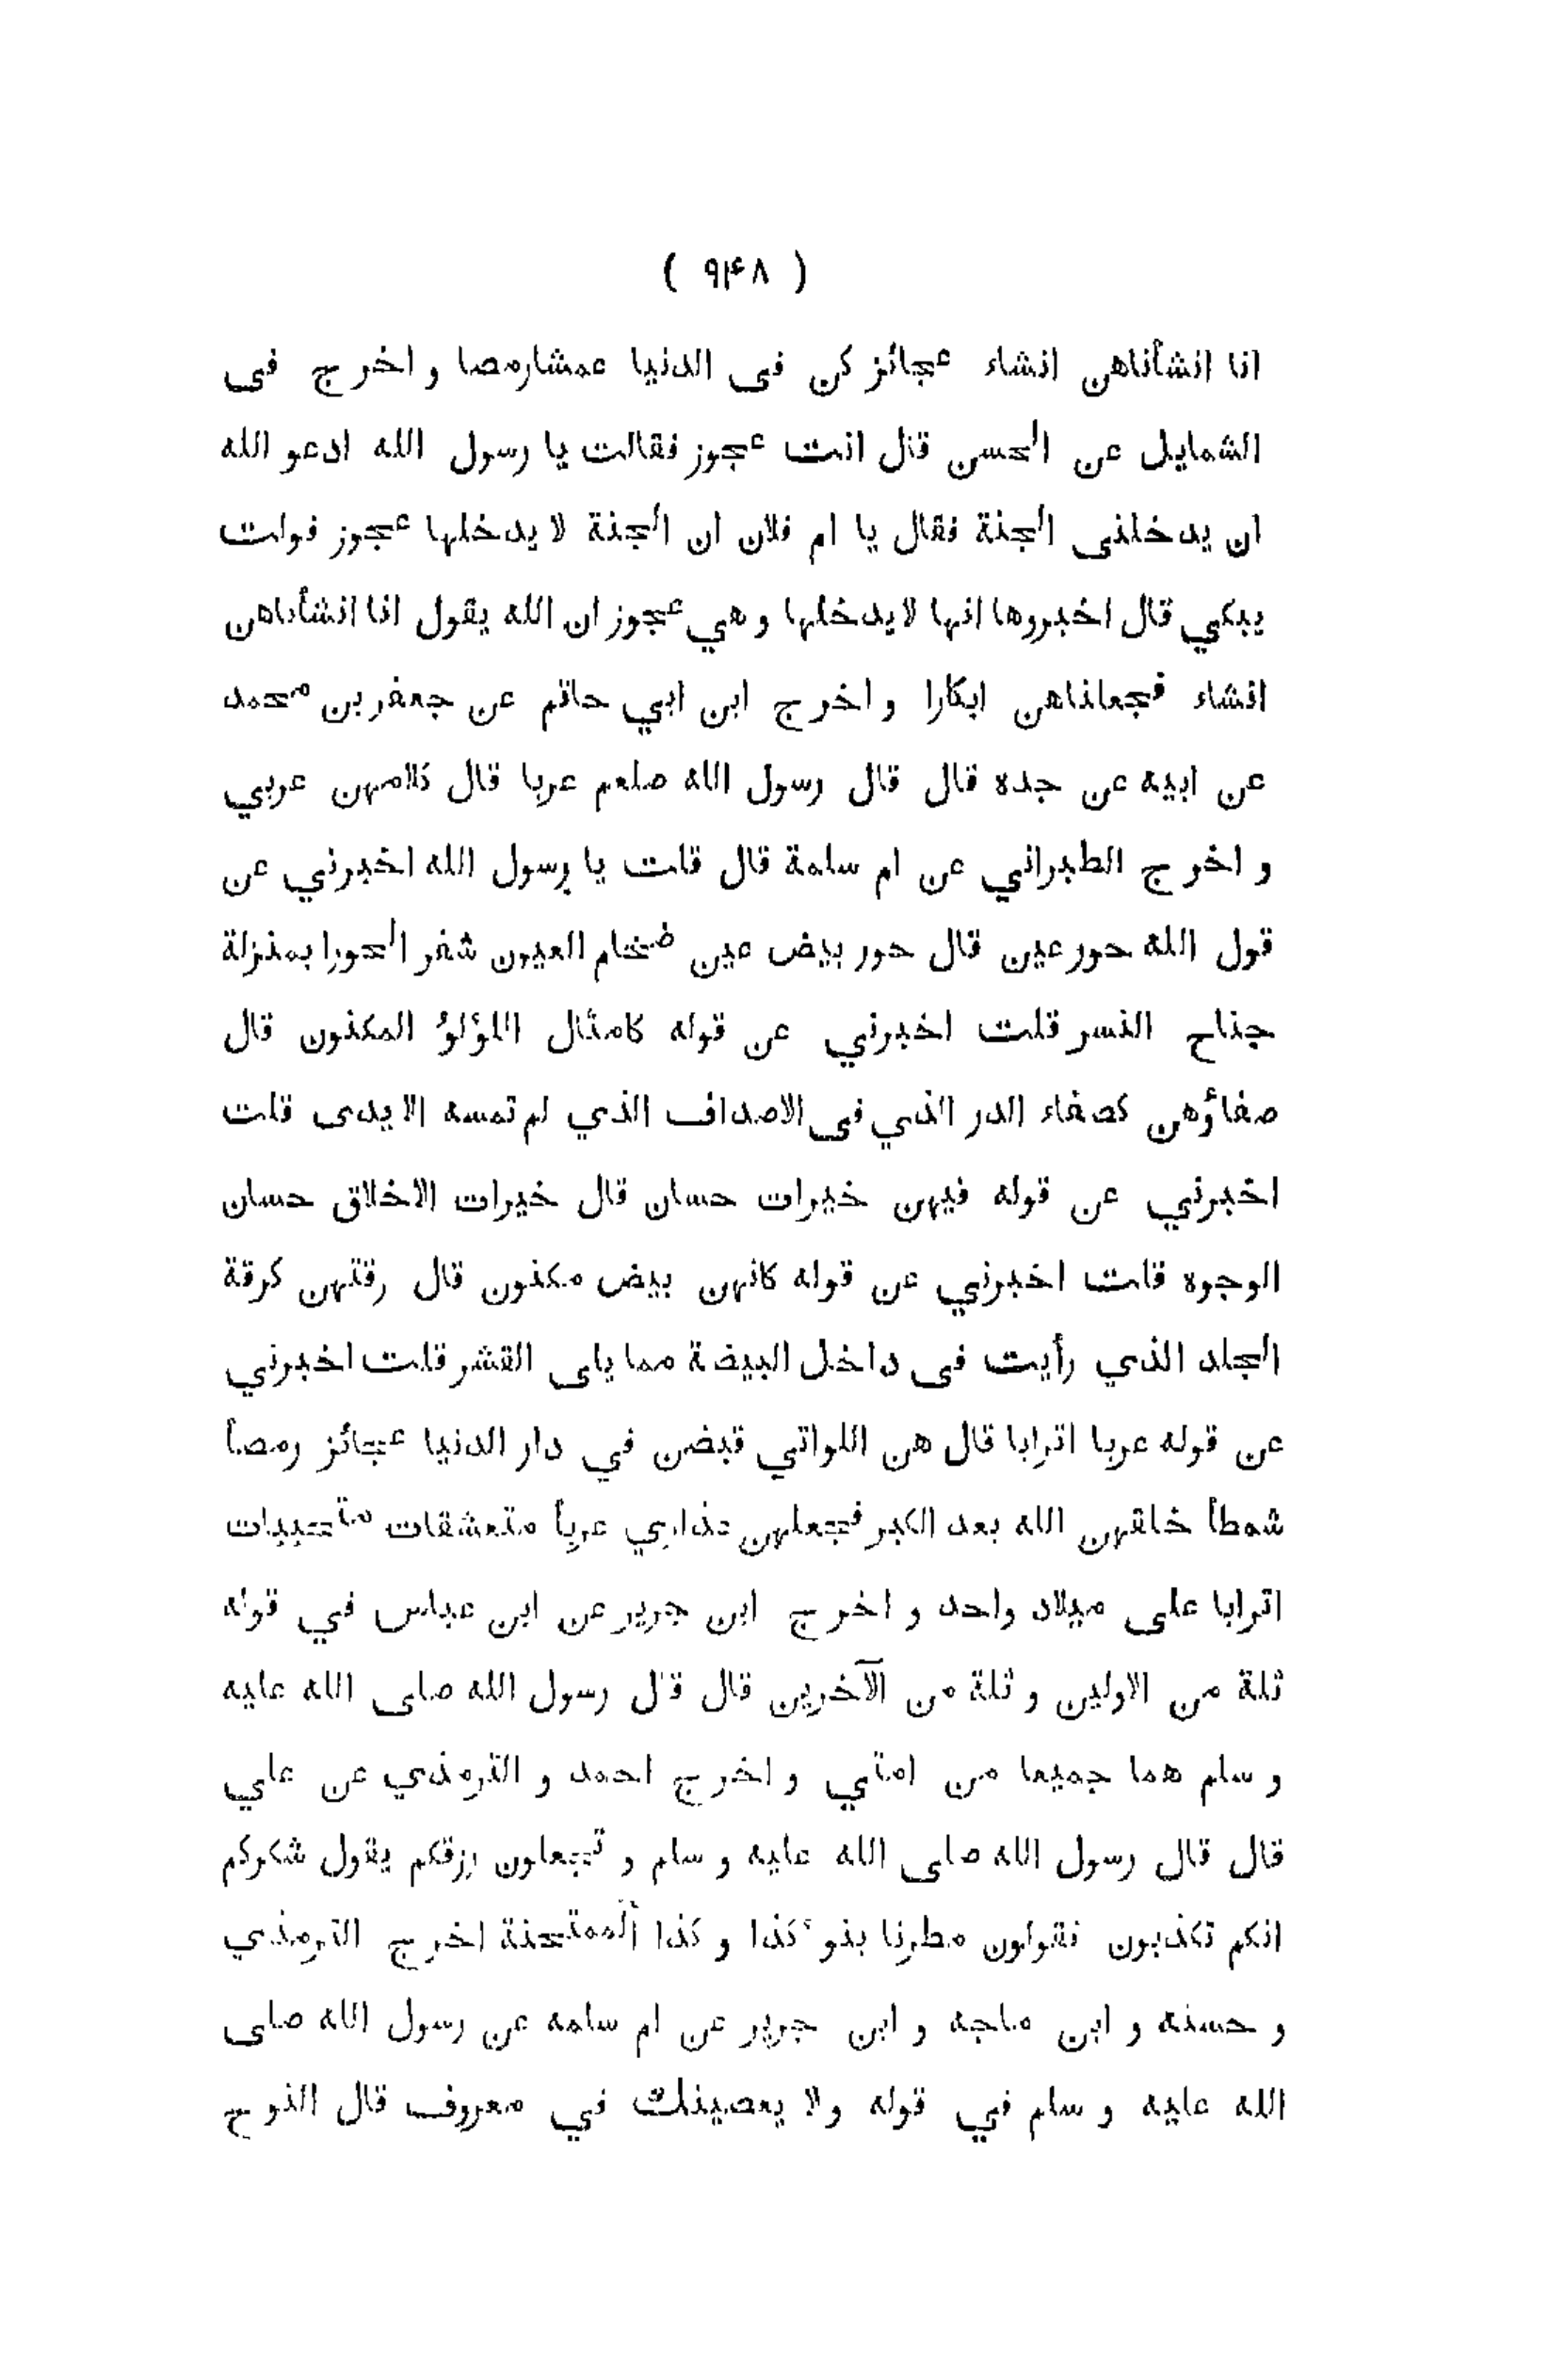 ( ٩۴٨ )
انا انشأناهن انشاء عجائز كن فى الدنيا عمشارمصا و اخرج فى
الشمايل عن الحسن قال اتت عجوز فقالت يا رسول الله ادعو الله
ان يدخلنى الجنة فقال يا ام فلان ان الجنة لا يدخلها عجوز فولت
يبكي قال اخبروها انها لايدخلها وهي عجوز ان الله يقول انا انشأناهن
انشاء فجعلناهن ابكارا و اخرج ابن ابي حاتم عن جعفر بن محمد
عن ابيه عن جده قال قال رسول الله صلعم عربا قال كلامهن عربي
و اخرج الطبراني عن ام سلمة قال قلت يا رسول الله اخبرني عن
قول الله حور عين قال حور بيض عين ضخام العيون شفر الحورا بمنزلة
جناح النسر قلت اخبرني عن قوله كامثال اللؤلؤ المكنون قال
صفاؤهن كصفاء الدر الذي فى الاصداف الذي لم تمسه الايدى قلت
اخبرني عن قوله فيهن خيرات حسان قال خيرات الاخلاق حسان
الوجوه قلت اخبرني عن قوله كانهن بيض مكنون قال رقتهن كرقة
الجلد الذي رأيت فى داخل البيضة مما يلى القشر قلت اخبرني
عن قوله عربا اترابا قال هن اللواتي قبضن في دار الدنيا عجائز رمصاً
شمطاً خلقهن الله بعد الكبر فجعلهن عذاري عرباً متعشقات متحببات
اترابا على ميلاد واحد و اخرج ابن جرير عن ابن عباس في قوله
ثلة من الاولين و ثلة من الآخرين قال قال رسول الله صلى الله عليه
و سلم هما جميعا من امتي و اخرج احمد و الترمذي عن علي
قال قال رسول الله صلى الله عليه و سلم و تجعلون رزقكم يقول شكركم
انكم تكذبون تقولون مطرنا بنوء كذا و كذا الممتحنة اخرج الترمذي
و حسنه و ابن ماجه و ابن جرير عن ام سلمه عن رسول الله صلى
الله عليه و سلم في قوله ولا يعصينك في معروف قال النوح